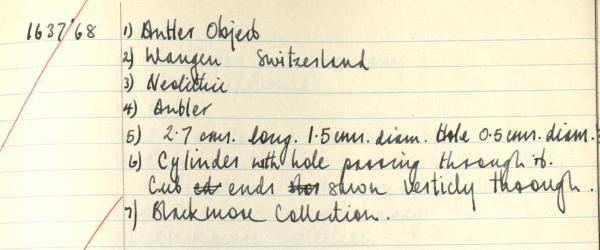 1637'68 1) Antler Object
2) Wangen Switzerland
3) Neolithic
4) Antler
5) 2.7 cms. long. 1.5 cms. diam. Hole 0.5 cms. diam.
6) Cylinder with hole passing through it.
Cut ends sawn verticly through.
7) Blackmore Collection.